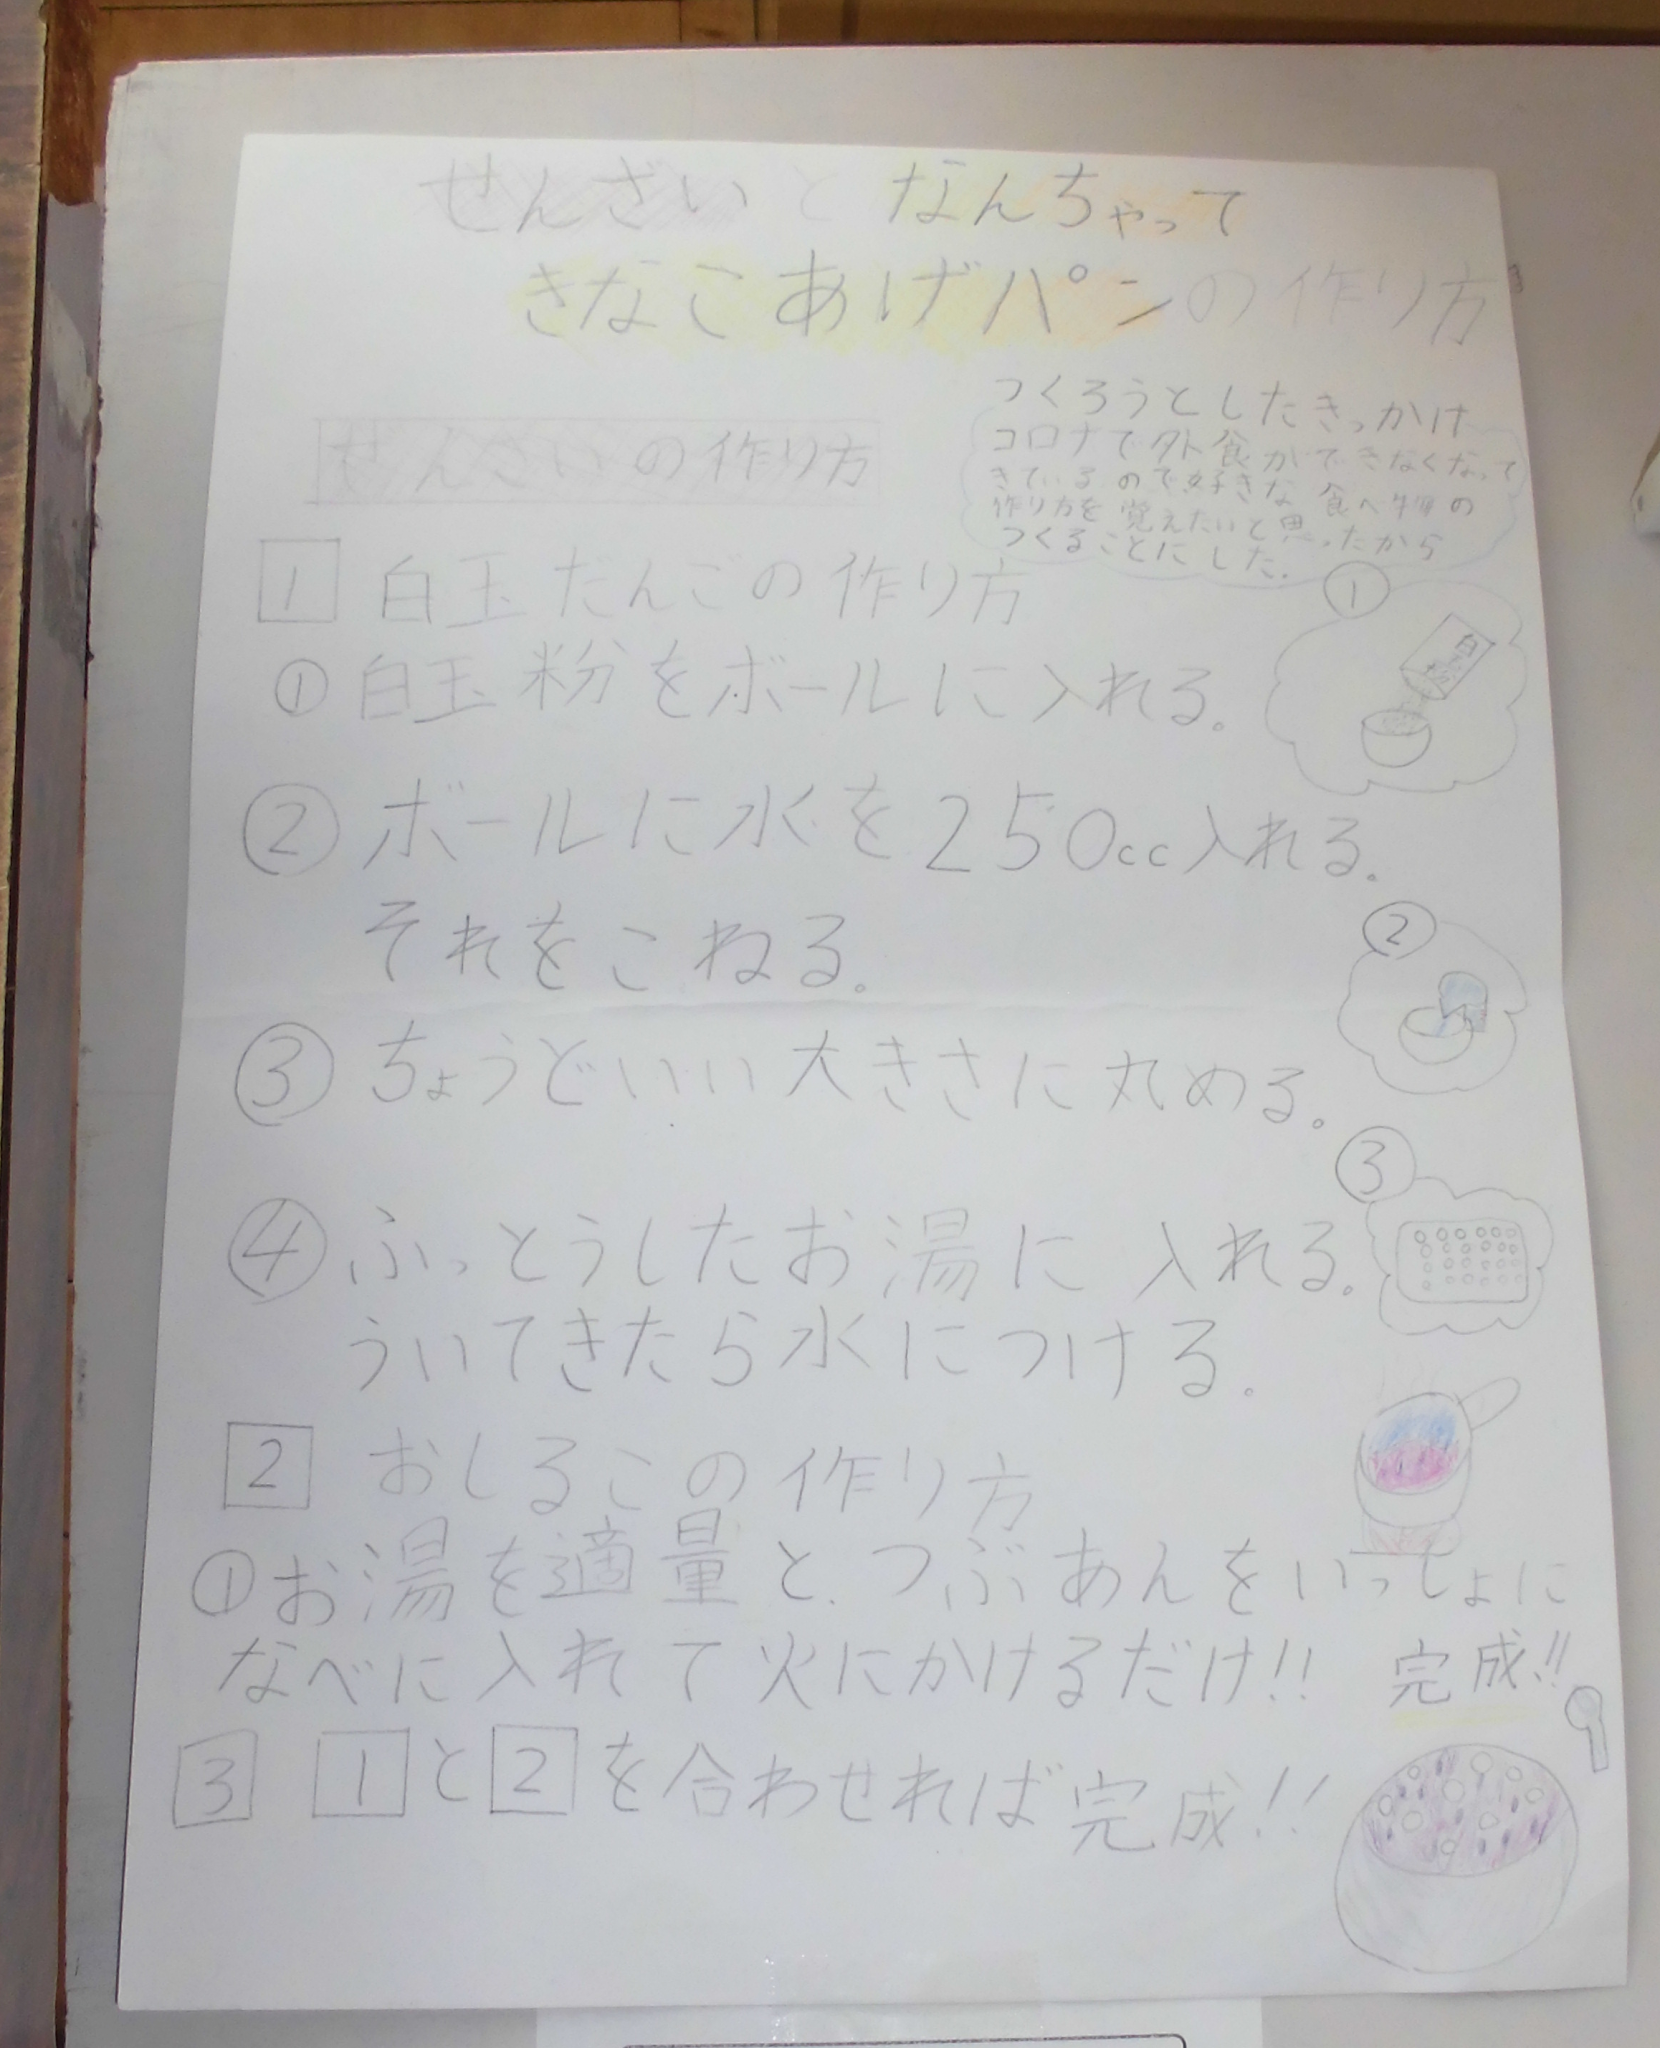 せんざいとなんちゃって
きなこあげパンの作り方
つくろうとしたきっかけ
コロナで外食ができなくなって
きているので好きな食べ物の
作り方を覚えたいと思ったから
つくることにした.
ぜんざいの作り方
1 白玉だんごの作り方
① 白玉粉をボールに入れる。
①
白玉粉
② ボールに水を250cc入れる。
それをこねる。
②
③ ちょうどいい大きさに丸める。
③
④ ふっとうしたお湯に入れる。
ういてきたら水につける。
2 おしるこの作り方
① お湯を適量と、つぶあんをいっしょに
なべに入れて火にかけるだけ!! 完成!!
3 1と2を合わせれば完成!!